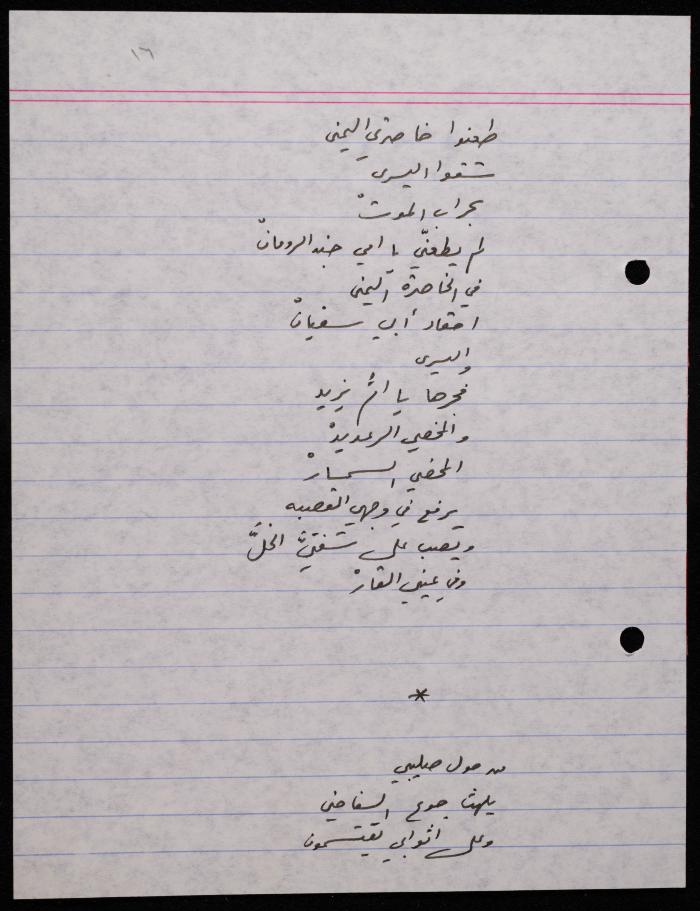 ١٦
طعنوا خاصرتي اليمنى
شقوا اليسرى
بحراب الموتْ
لم يطعنّي يا امي جند الرومانْ
في الخاصرة اليمنى
احقاد أبي سفيانْ
واليسرى
فجرها يا أمَّ يزيد
والمخصي الرعديدْ
المخصي السمسارْ
يرفع في وجهي القصبه
ويصب على شفتيَّ الخلَّ
وفي عيني القارْ
*
من حول صليبي
يلهث جوع
وعلى اثوابي يقتسمون